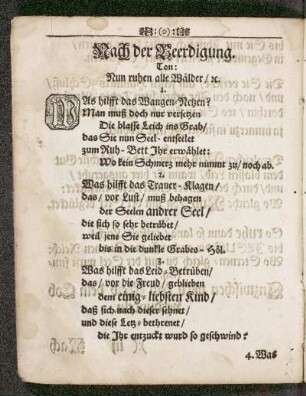 :(o):
Nach der Beerdigung.
Ton:
Nun ruhen alle Wälder / ꝛc.
1.
WAs hilfft das Wangen-Netzen?
Man muß doch nur versetzen
Die blasse Leich ins Grab /
das Sie nun Seel- entseilet
zum Ruh- Bett Ihr erwählet:
Wo kein Schmertz mehr nimmt zu / noch ab.
2.
Was hilfft das Traur- Klagen /
das / vor Lust / muß behagen
der Seelen andrer Seel /
die sich so sehr betrübet /
weil jene Sie geliebet
bis in die dunkle Grabes- Höl.
3.
Was hilfft das Leid- Betrüben /
das / vor die Freud / geblieben
dem einig- liebsten Kind /
daß sich nach dieser sehnet /
und diese Letz- bethrenet /
die Ihr entzuckt wurd so geschwind?
4. Was